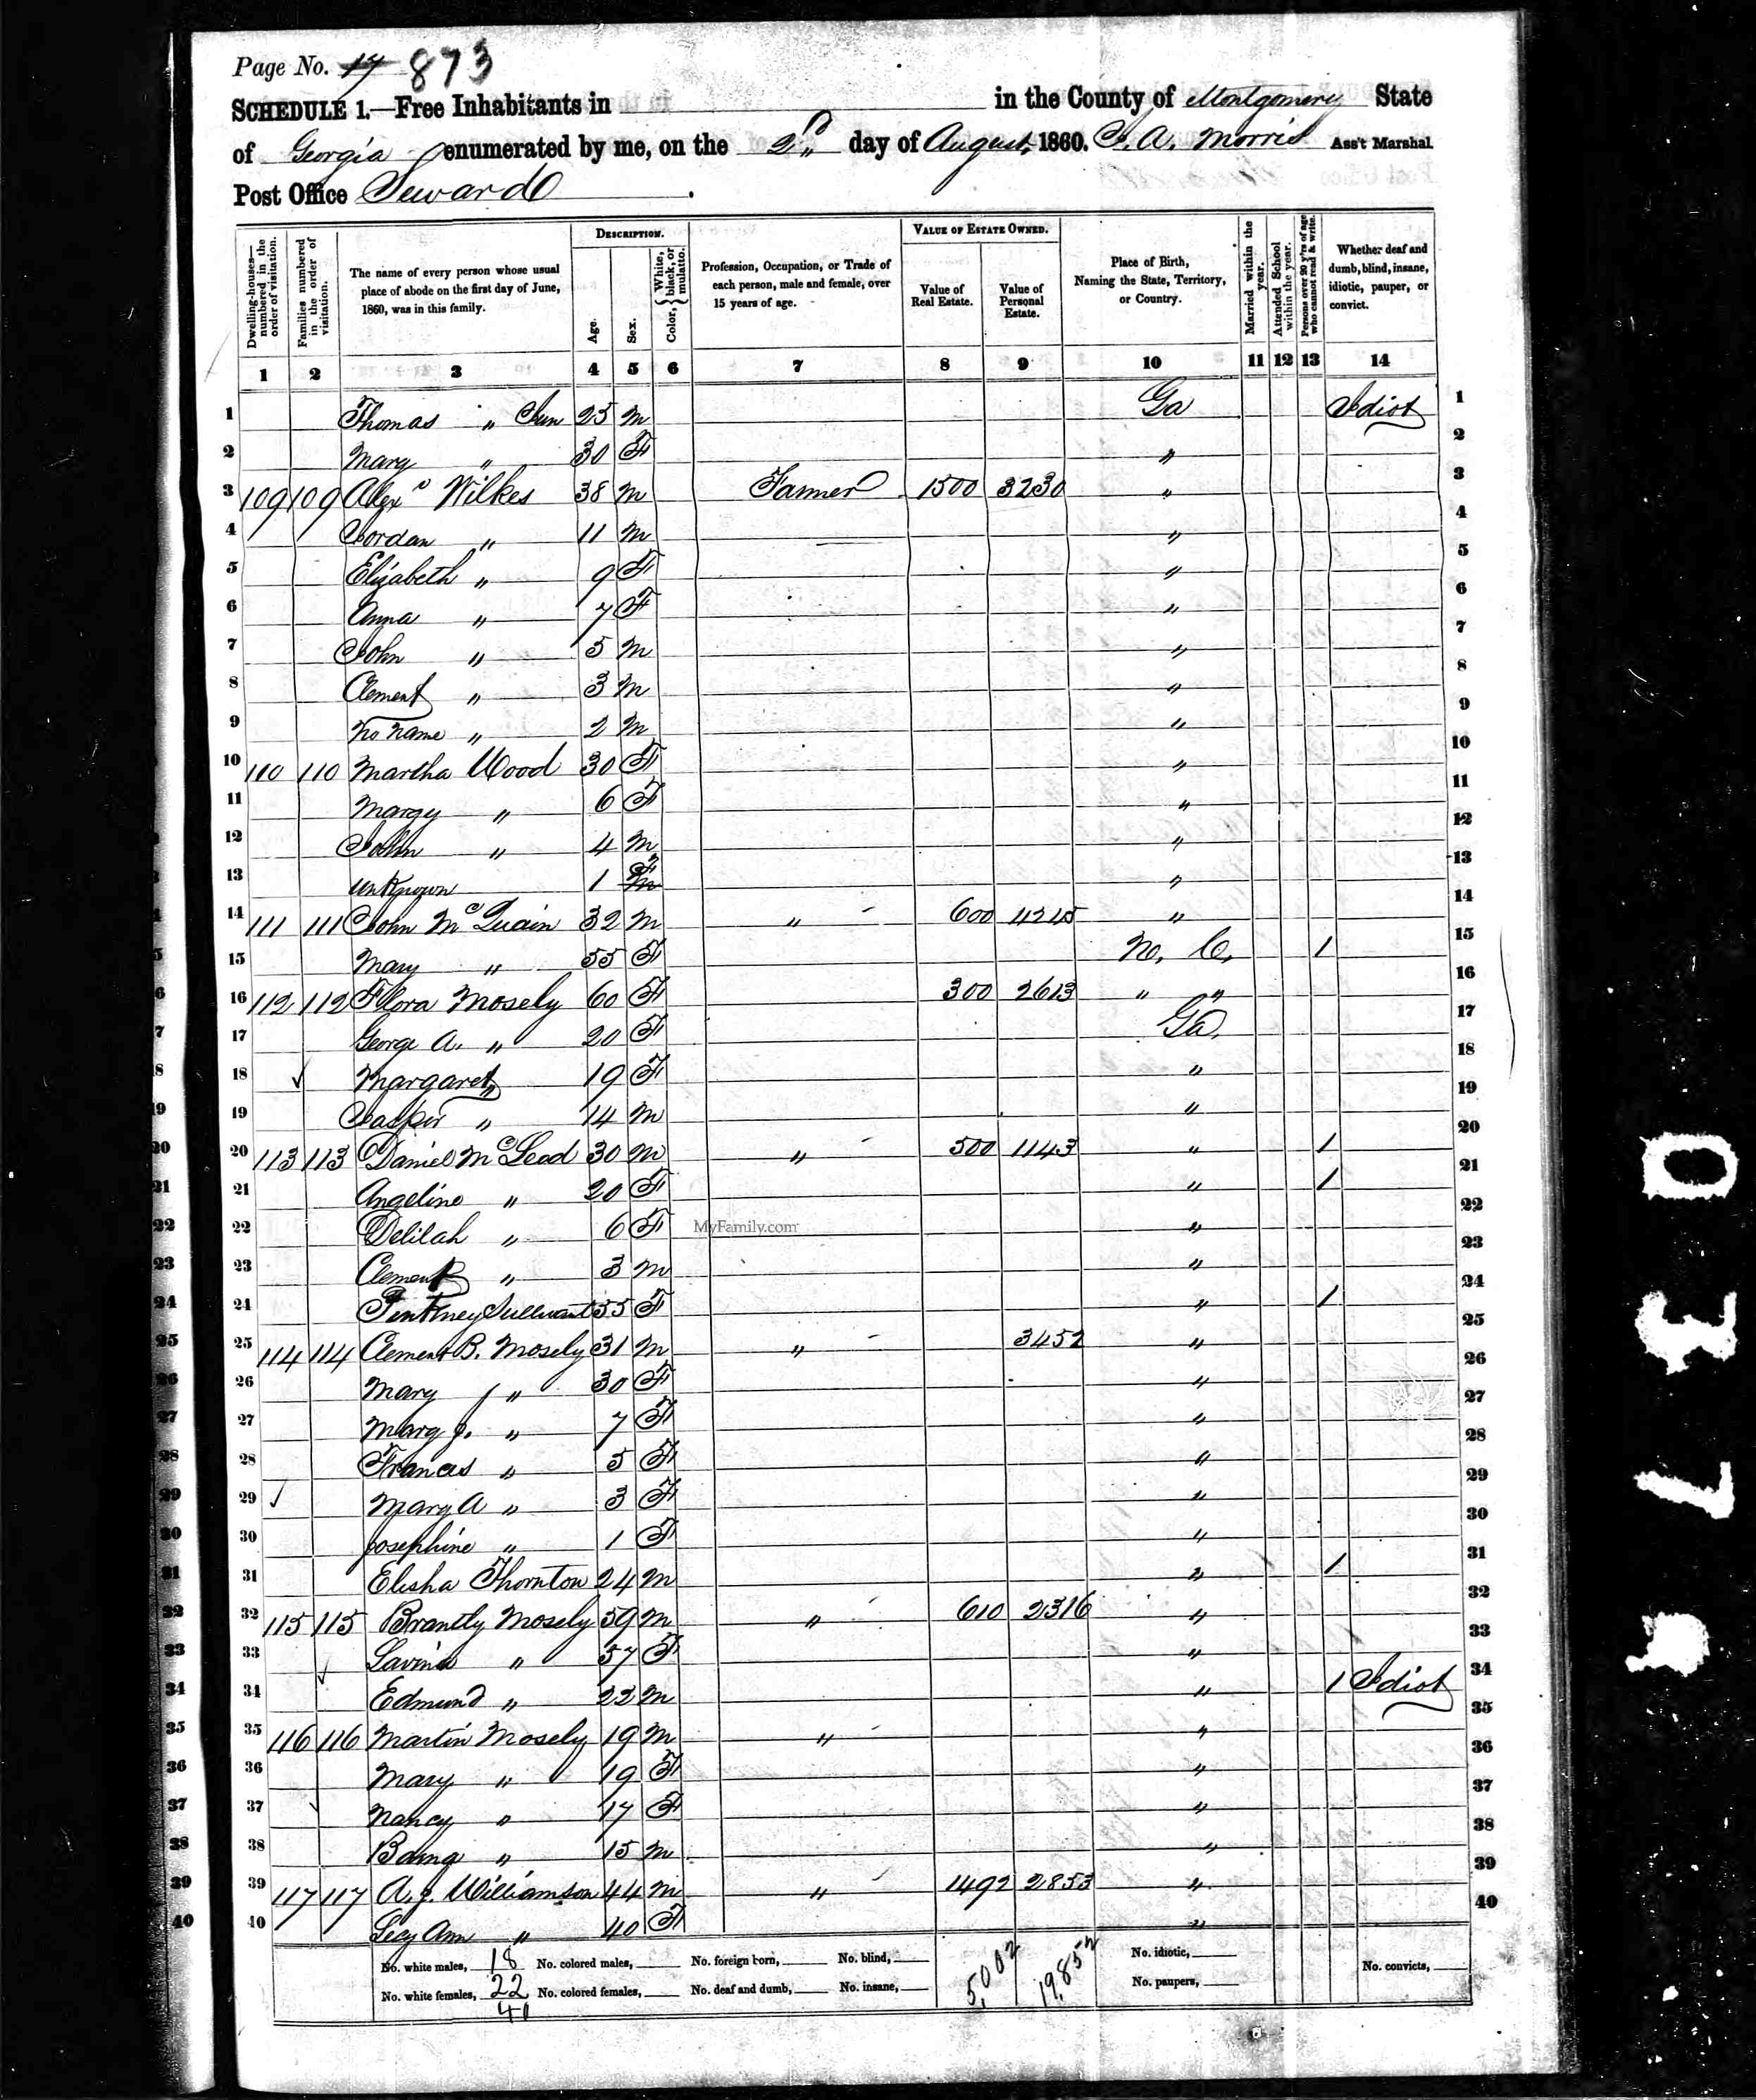 Page No. 17 873
SCHEDULE 1.—Free Inhabitants in in the County of Montgomery State
of Georgia enumerated by me, on the 2d day of August, 1860. A. Morris Ass't Marshal.
Post Office Seward
Dwelling-houses—numbered in the order of visitation.
Families numbered in the order of visitation.
The name of every person whose usual place of abode on the first day of June, 1860, was in this family.
DESCRIPTION.
Age.
Sex.
Color, { White, black, or mulatto.
Profession, Occupation, or Trade of each person, male and female, over 15 years of age.
VALUE OF ESTATE OWNED.
Value of Real Estate.
Value of Personal Estate.
Place of Birth, Naming the State, Territory, or Country.
Married within the year.
Attended School within the year.
Persons over 20 y'rs of age who cannot read & write.
Whether deaf and dumb, blind, insane, idiotic, pauper, or convict.
1 2 3 4 5 6 7 8 9 10 11 12 13 14
1 Thomas " Jun 25 m Ga Idiot 1
2 Mary " 30 F " 2
3 109 109 Alexr Wilkes 38 m Farmer 1500 3230 " 3
4 Jordan " 11 m " 4
5 Elizabeth " 9 F " 5
6 Anna " 7 F " 6
7 John " 5 m " 7
8 Clement " 3 m " 8
9 No name " 2 m " 9
10 110 110 Martha Wood 30 F " 10
11 Margy " 6 F " 11
12 John " 4 m " 12
13 unknown 1 F " 13
14 111 111 John Mc Quain 32 m " 600 4245 " 14
15 Mary " 55 F No. C. 1 15
16 112 112 Flora Mosely 60 F 300 2613 " " 16
17 George A. " 20 F Ga. 17
18 Margaret " 19 F " 18
19 Jasper " 14 m " 19
20 113 113 Daniel Mc Leod 30 m " 500 1143 " 1 20
21 Angeline " 20 F " 1 21
22 Delilah " 6 F MyFamily.com " 22
23 Clement " 3 m " 23
24 Pinkney Sullivant 55 F " 1 24
25 114 114 Clement B. Mosely 31 m " 3452 " 25
26 Mary " 30 F " 26
27 Mary J. " 7 F " 27
28 Frances " 5 F " 28
29 Mary A " 3 F " 29
30 Josephine " 1 F " 30
31 Elisha Thornton 24 m " 1 31
32 115 115 Brantly Mosely 59 m " 610 2316 " 32
33 Lavina " 57 F " 33
34 Edmund " 22 m " 1 Idiot 34
35 116 116 Martin Mosely 19 m " " 35
36 Mary " 19 F " 36
37 Nancy " 17 F " 37
38 " 15 m " 38
39 117 117 A. J. Williamson 44 m " 1492 2853 " 39
40 Lecy Ann " 40 F " 40
No. white males, 18 No. colored males, No. foreign born, No. blind, 5,002 19,852 No. idiotic, No. convicts,
No. white females, 22 No. colored females, No. deaf and dumb, No. insane, No. paupers,
40